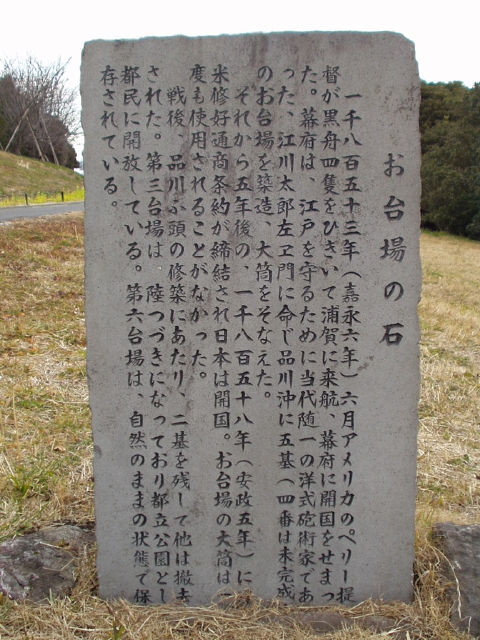 お台場の石
一千八百五十三年(嘉永六年)六月アメリカのペリー提
督が黒舟四隻をひきいて浦賀に来航、幕府に開国をせまっ
た。幕府は、江戸を守るために当代随一の洋式砲術家であ
った、江川太郎左ヱ門に命じ品川沖に五基(四番は未完成
のお台場を築造、大筒をそなえた。
それから五年後の、一千八百五十八年(安政五年)に
米修好通商条約が締結され日本は開国。お台場の大筒は
度も使用されることがなかった。
戦後、品川ふ頭の修築にあたり、二基を残して他は撤去
された。第三台場は、陸つづきになっており都立公園とし
都民に開放している。第六台場は、自然のままの状態で保
存されている。